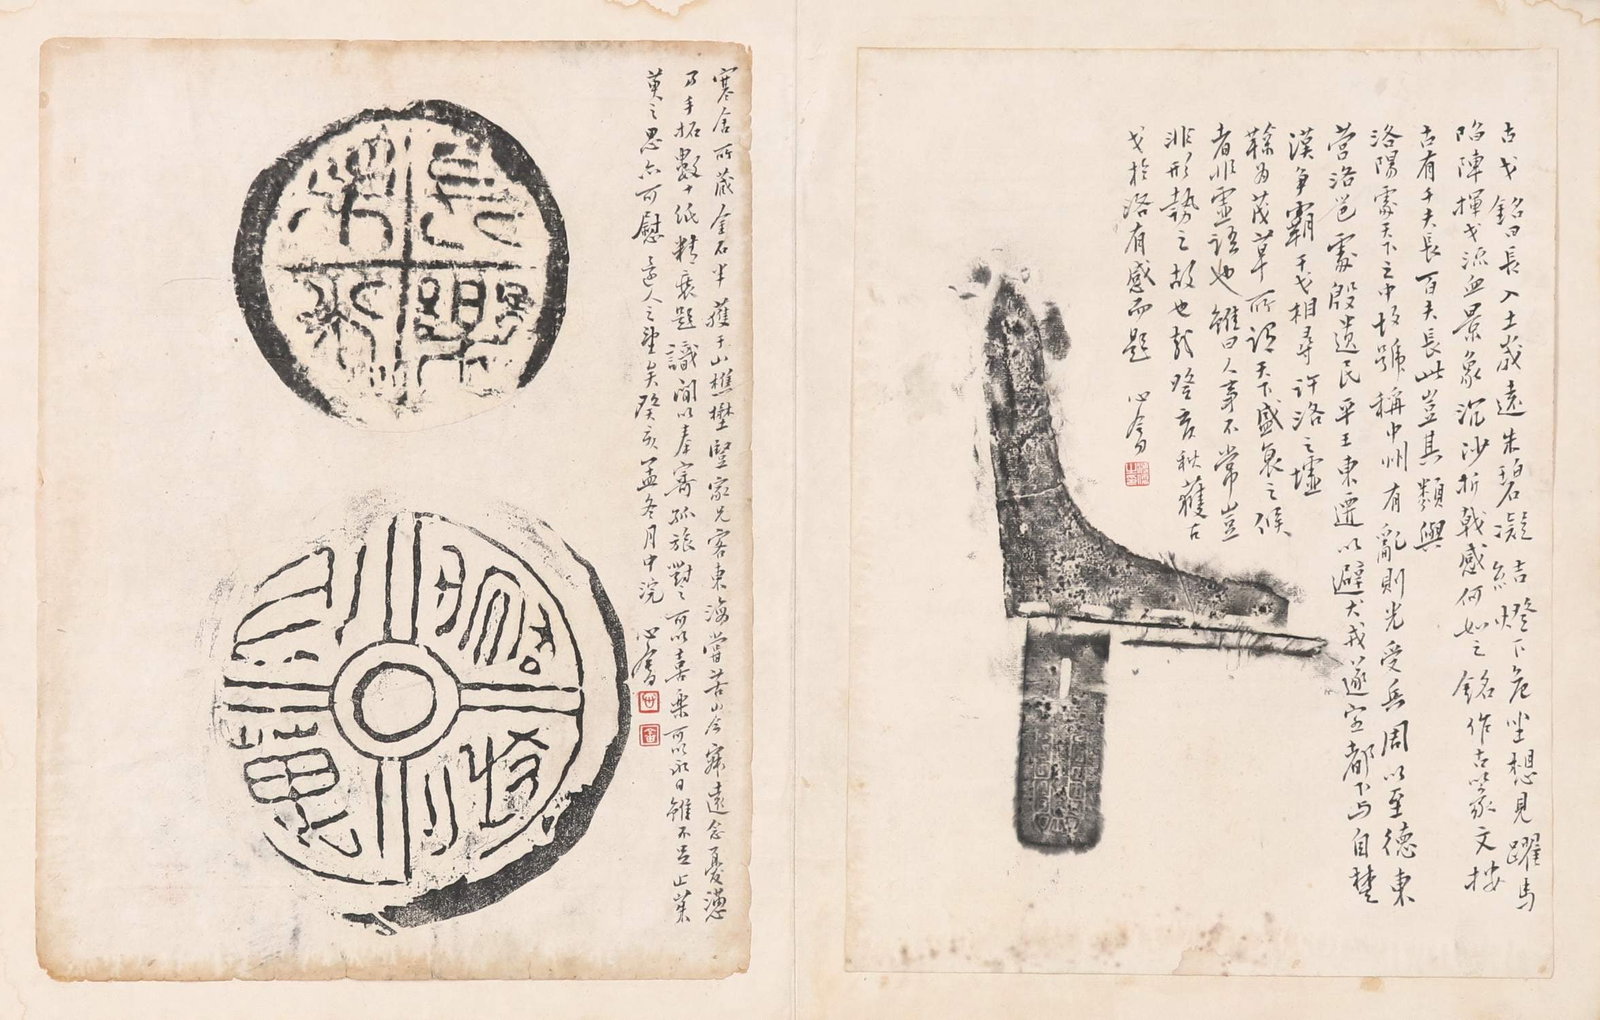 古戈銘曰長入土歲遠朱碧凝結燈下危坐想見躍馬
陷陣揮戈流血景象沉沙折戟感何如之銘作古篆文按
古有千夫長百夫長此豈其類與
洛陽處天下之中故號稱中州有亂則先受兵周以至德東
營洛邑處殷遺民平王東遷以避犬戎遂定都下與自楚
漢爭霸干戈相尋許洛之墟
鞠為茂草所謂天下盛衰之候
者非虛語也雖曰人事不常豈
非形勢之故也哉癸亥秋獲古
戈於洛有感而題 心畬
寒舍所藏金石半獲于山樵樊豎家兄客東海嘗苦山令寂遠念憂懣
乃手拓數十紙精裝題識間以奉寄孤旅對之可以喜樂可以永日雖不足止萊
萸之思亦可慰遠人之望矣癸亥孟冬月中浣 心畬